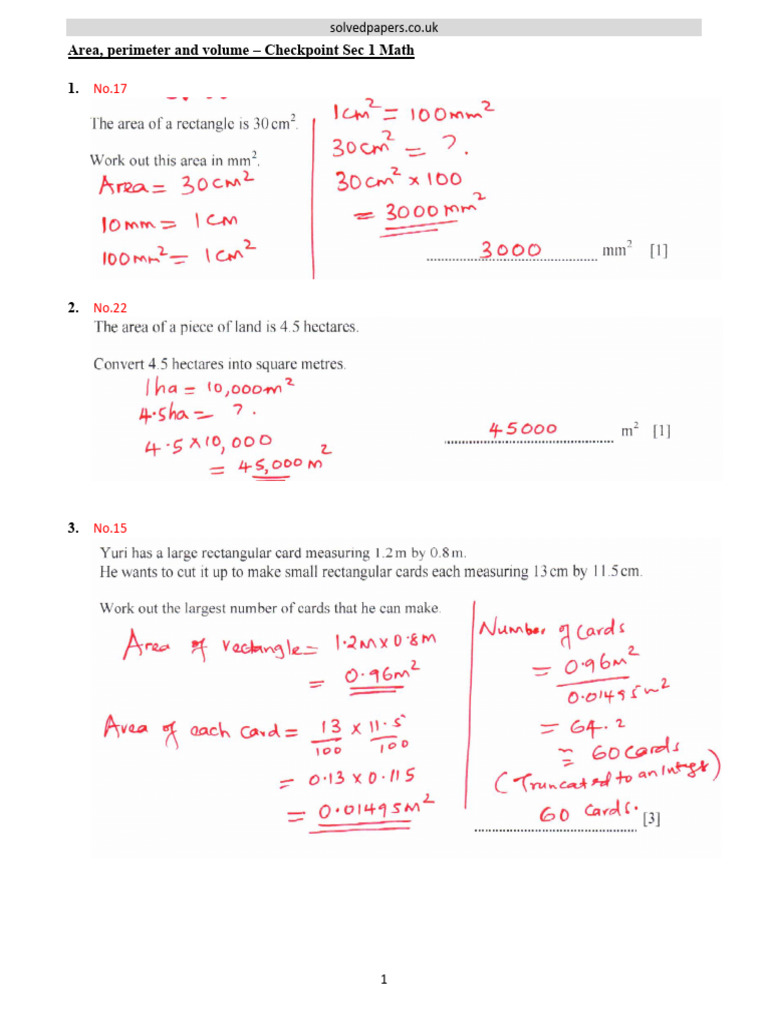 solvedpapers.co.uk
Area, perimeter and volume – Checkpoint Sec 1 Math
1. No.17
The area of a rectangle is 30 cm².
Work out this area in mm².
Area = 30cm²
10mm = 1cm
100mm² = 1cm²
1cm² = 100mm²
30cm² = ?.
30cm² × 100
= 3000mm²
3000 mm² [1]
2. No.22
The area of a piece of land is 4.5 hectares.
Convert 4.5 hectares into square metres.
1ha = 10,000m²
4.5ha = ?.
4.5 × 10,000
= 45,000m²
45000 m² [1]
3. No.15
Yuri has a large rectangular card measuring 1.2 m by 0.8 m.
He wants to cut it up to make small rectangular cards each measuring 13 cm by 11.5 cm.
Work out the largest number of cards that he can make.
Area of rectangle = 1.2m × 0.8m
= 0.96m²
Area of each card = 13/100 × 11.5/100
= 0.13 × 0.115
= 0.01495m²
Number of cards
= 0.96m²/0.01495m²
= 64.2
≈ 60 cards
(Truncated to an Integer)
60 cards. [3]
1